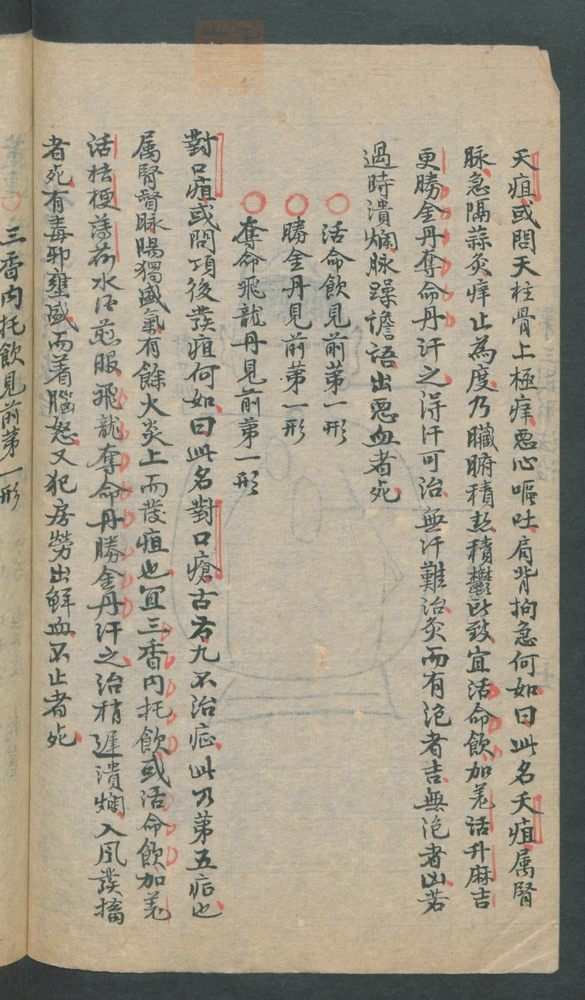 天疽或問天柱骨上極痒惡心嘔吐肩背拘急何如曰此名天疽属腎
脉急隔蒜灸痒止為度乃臟腑積热積鬱所致宜活命飲加羌活升麻吉
更勝金丹奪命丹汗之得汗可治無汗難治灸而有泡者吉無泡者凶若
過時潰爛脉躁譫語出惡血者死
活命飲見前第一形
勝金丹見前第一形
奪命飛龍丹見前第一形
對口疽或問項後發疽何如曰此名對口瘡古方九不治症此乃第五症也
属腎督脉陽獨盛氣有餘火炎上而發疽也宜三香内托飲或活命飲加羌
活桔梗薄荷水酒煎服飛龍奪命丹勝金丹汗之治稍遲潰爛入風發搐
者死有毒邪壅盛而着腦怒又犯房勞出鮮血不止者死
三香内托飲見前第一形